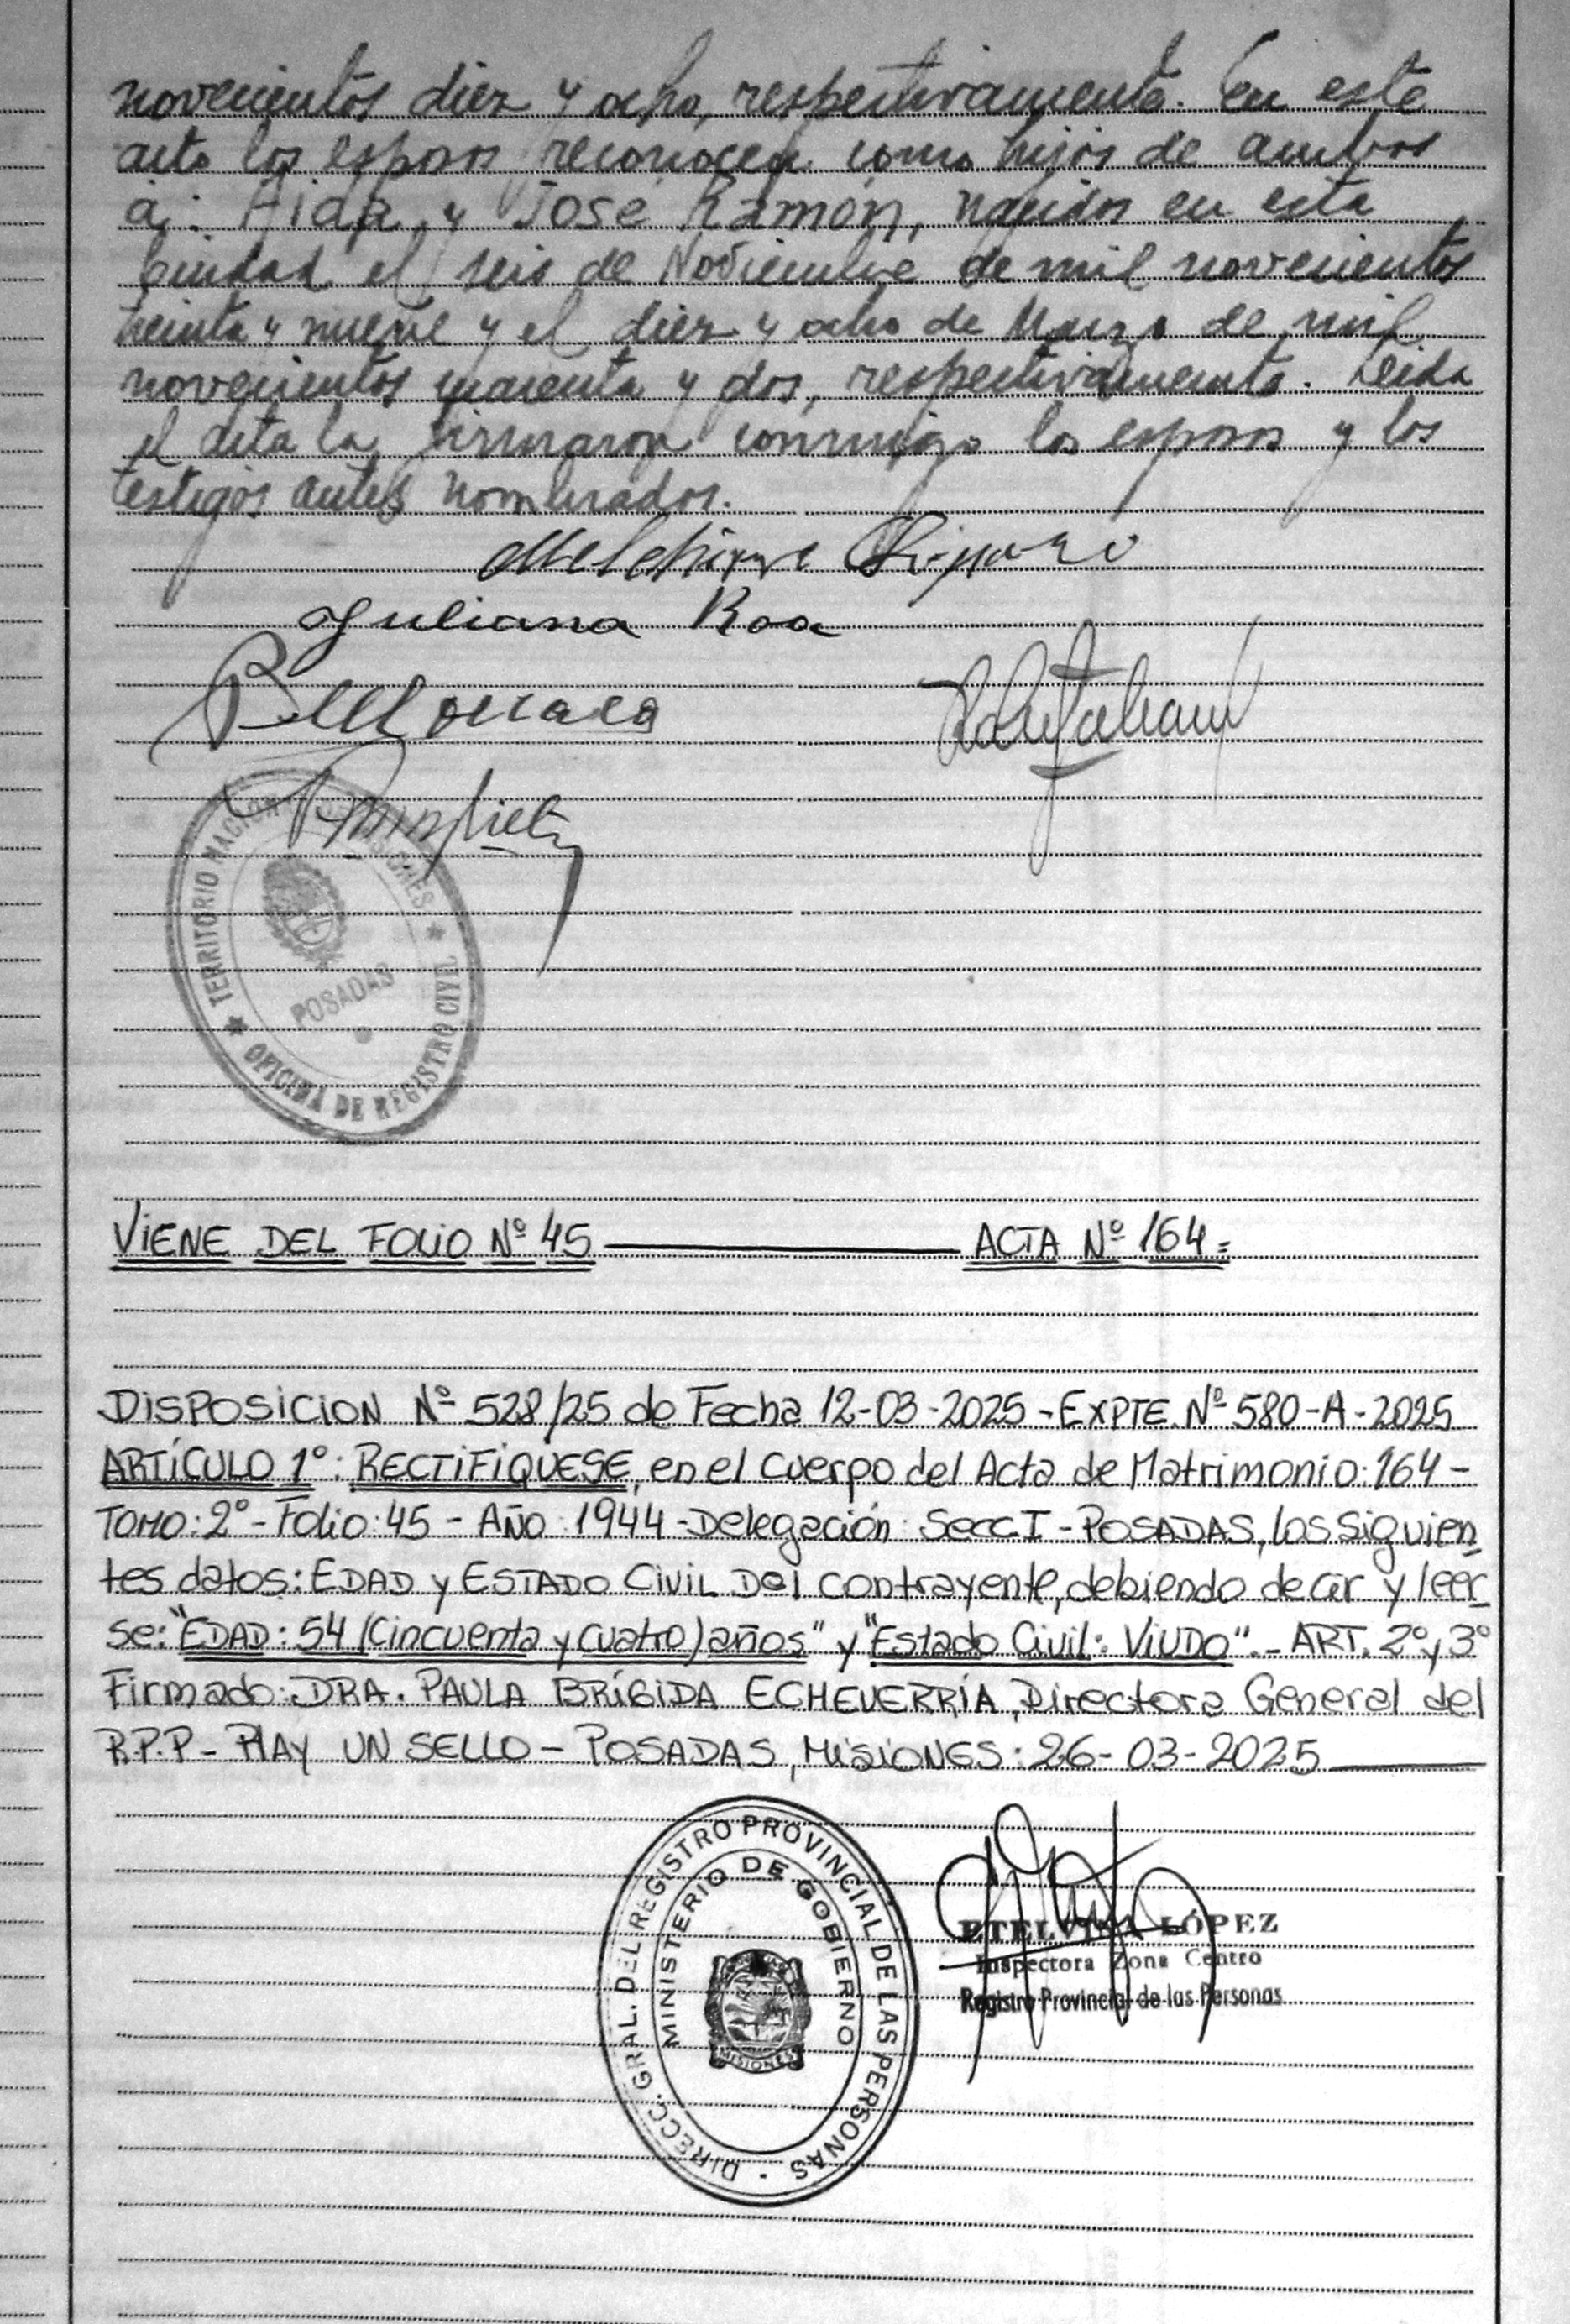 novecientos diez y ocho, respectivamente. En este
acto los esposos reconocen como hijos de ambos
a: Aida y José Ramón, nacidos en esta
Ciudad el seis de Noviembre de mil novecientos
treinta y nueve y el diez y ocho de Marzo de mil
novecientos cuarenta y dos, respectivamente. Leida
el acta la firmaron conmigo los esposos y los
testigos antes nombrados.
Juliana Roa
TERRITORIO NACIONAL MISIONES
POSADAS
OFICINA DE REGISTRO CIVIL
VIENE DEL FOLIO Nº 45 ACTA Nº 164=
DISPOSICION Nº 528/25 de Fecha 12-03-2025-EXPTE.Nº 580-A-2025
ARTÍCULO 1º: RECTIFIQUESE, en el Cuerpo del Acta de Matrimonio:164-
TOMO:2º-Folio:45-AÑO:1944-Delegación:Secc I-POSADAS, los siguien
tes datos: EDAD y ESTADO Civil Del contrayente, debiendo decir y leer
se: "EDAD: 54 (Cincuenta y Cuatro) años" y "Estado Civil: VIUDO".-ART. 2º y 3º
Firmado: DRA. PAULA BRÍGIDA ECHEVERRÍA, Directora General del
R.P.P-HAY UN SELLO-POSADAS, MISIONES: 26-03-2025
DIRECC. GRAL. DEL REGISTRO PROVINCIAL DE LAS PERSONAS
MINISTERIO DE GOBIERNO
MISIONES
ETELVINA LÓPEZ
Inspectora Zona Centro
Registro Provincial de las Personas